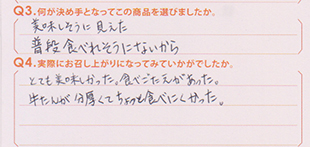 Q3.何が決め手となってこの商品を選びましたか。
美味しそうに見えた
普段食べれそうにないから
Q4.実際にお召し上がりになってみていかがでしたか。
とても美味しかった。食べごたえがあった。
牛たんが分厚くてちょっと食べにくかった。